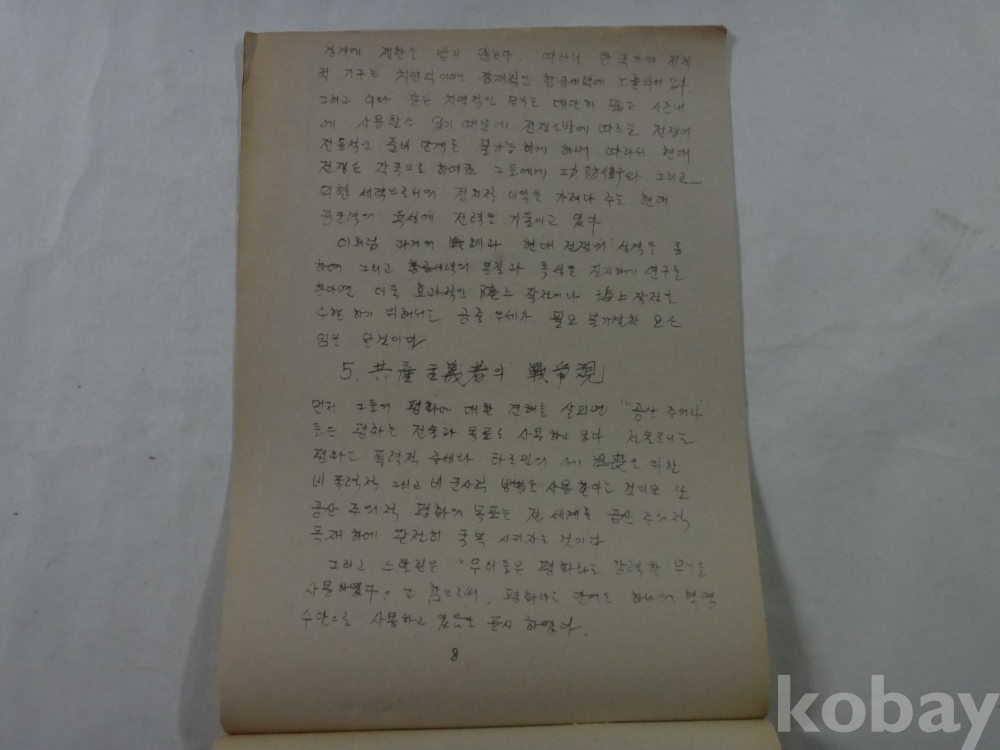 경계에 제한을 받지 않는다. 따라서 한 국가의 전체
적 기구는 직접적이며 잠재적인 항공세력에 노출되어 있
그리고 이와 같은 치명적인 무기는 대단히 짧은 시간내
에 사용할수 있기 때문에 전쟁 에 따르는 전쟁의
전통적인 준비 단계를 불가능하게 하며 따라서 현대
전쟁은 각국으로 하여금 그 그리고
위협 세력으로서의 정치적 이익을 가져다 주는 현대
공군력의 육성에 전력을 기울이고 있다
이처럼 과거의 戰 과 현대 전쟁의 성격을 통
하여 그리고 항공세력의 본질과 특성을 연구를
한다면 더욱 효과적인 陸上 작전이나 海上 작전을
수행 하기 위해서는 공중 우세가 필요 불가결한 요소
임을 것이다
5. 共産主義者의 戰爭観
먼저 그들의 평화에 대한 견해를 살피면 "공산 주의자
들은 평화는 전술과 목표로 사용하고 있다 전술로서는
평화는 폭력적 타도 위한
비 폭력적 그리고 비 군사적 방법을 사용한다는 것이요 또
공산 주의적 평화의 목표는 전 세계를 공산 주의적
독재 하에 완전히 굴복 시키자는 것이다
그리고 스탈린은 "우리들은 평화라는 강력한 무기를
사용하였다" 고 함으로써, 평화라는 단어를 하나의 혁명
수단으로 사용하고 있음을 표시 하였다.
8
kobay